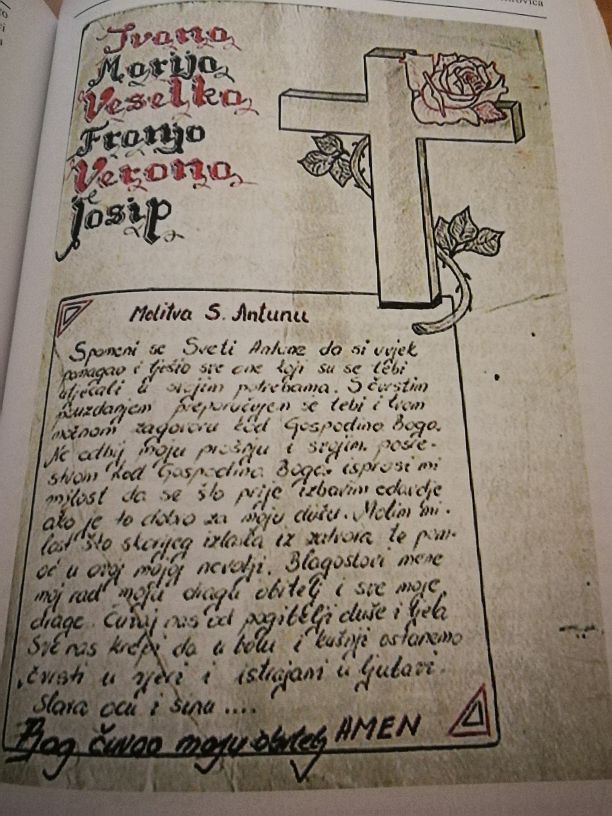 Ivana
Marija
Veselka
Franjo
Verona
Josip
Molitva S. Antunu
Spomeni se Sveti Antune da si uvjek
pomagao i tješio sve one koji su se tebi
utjecali u svojim potrebama. S čvrstim
pouzdanjem preporučujem se tebi i tvom
moćnom zagovoru kod Gospodina Boga.
Ne odbij moju prošnju i svojim posre-
stvom kod Gospodina Boga isprosi mi
milost da se što prije izbavim odavdje
ako je to dobro za moju dušu. Molim mi-
lost što skorijeg izlaska iz zatvora te pom-
oć u ovoj mojoj nevolji. Blagoslovi mene
moj rad moju dragu obitelj i sve moje
drage. Čuvaj nas od pogibelji duše i tjela
Sve nas krijepi da u bolu i kušnji ostanemo
čvrsti u vjeri i istrajani u ljubavi.
Slava ocu i sinu ....
AMEN
Bog čuvao moju obitelj